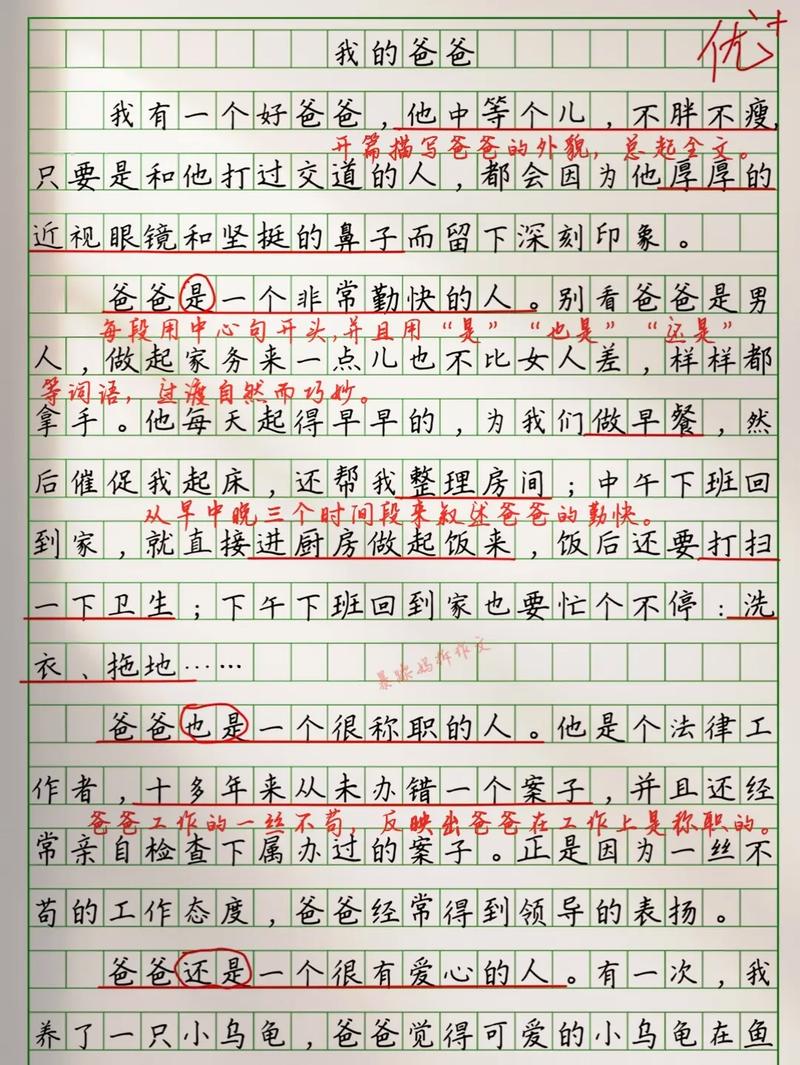 我的爸爸
优+
我有一个好爸爸，他中等个儿，不胖不瘦，
开篇描写爸爸的外貌，总起全文。
只要是和他打过交道的人，都会因为他厚厚的
近视眼镜和坚挺的鼻子而留下深刻印象。
爸爸是一个非常勤快的人。别看爸爸是男
每段用中心句开头,并且用“是”“也是”“还是”
人，做起家务来一点儿也不比女人差，样样都
等词语，过渡自然而巧妙。
拿手。他每天起得早早的，为我们做早餐，然
后催促我起床，还帮我整理房间；中午下班回
从早中晚三个时间段来叙述爸爸的勤快。
到家，就直接进厨房做起饭来，饭后还要打扫
一下卫生；下午下班回到家也要忙个不停：洗
衣、拖地……
爸爸也是一个很称职的人。他是个法律工
作者，十多年来从未办错一个案子，并且还经
爸爸工作的一丝不苟，反映出爸爸在工作上是称职的。
常亲自检查下属办过的案子。正是因为一丝不
苟的工作态度，爸爸经常得到领导的表扬。
爸爸还是一个很有爱心的人。有一次，我
养了一只小乌龟，爸爸觉得可爱的小乌龟在鱼